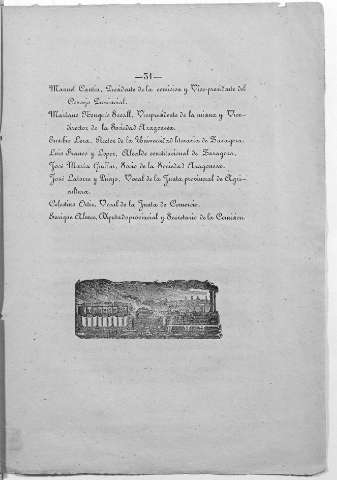 —31—
Manuel Cantin, Presidente de la comision y Vice-presidente del
Consejo Provincial.
Mariano Nougués Secall, Vicepresidente de la misma y Vice-
director de la Sociedad Aragonesa.
Eusebio Lera, Rector de la Universidad literaria de Zaragoza.
Luis Franco y Lopez, Alcalde constitucional de Zaragoza.
José María Socio de la Sociedad Aragonesa.
José Latorre y Vocal de la Junta provincial de Agri-
cultura.
Celestino Ortiz, Vocal de la Junta de Comercio.
Enrique Diputado provincial y Secretario de la Comision.